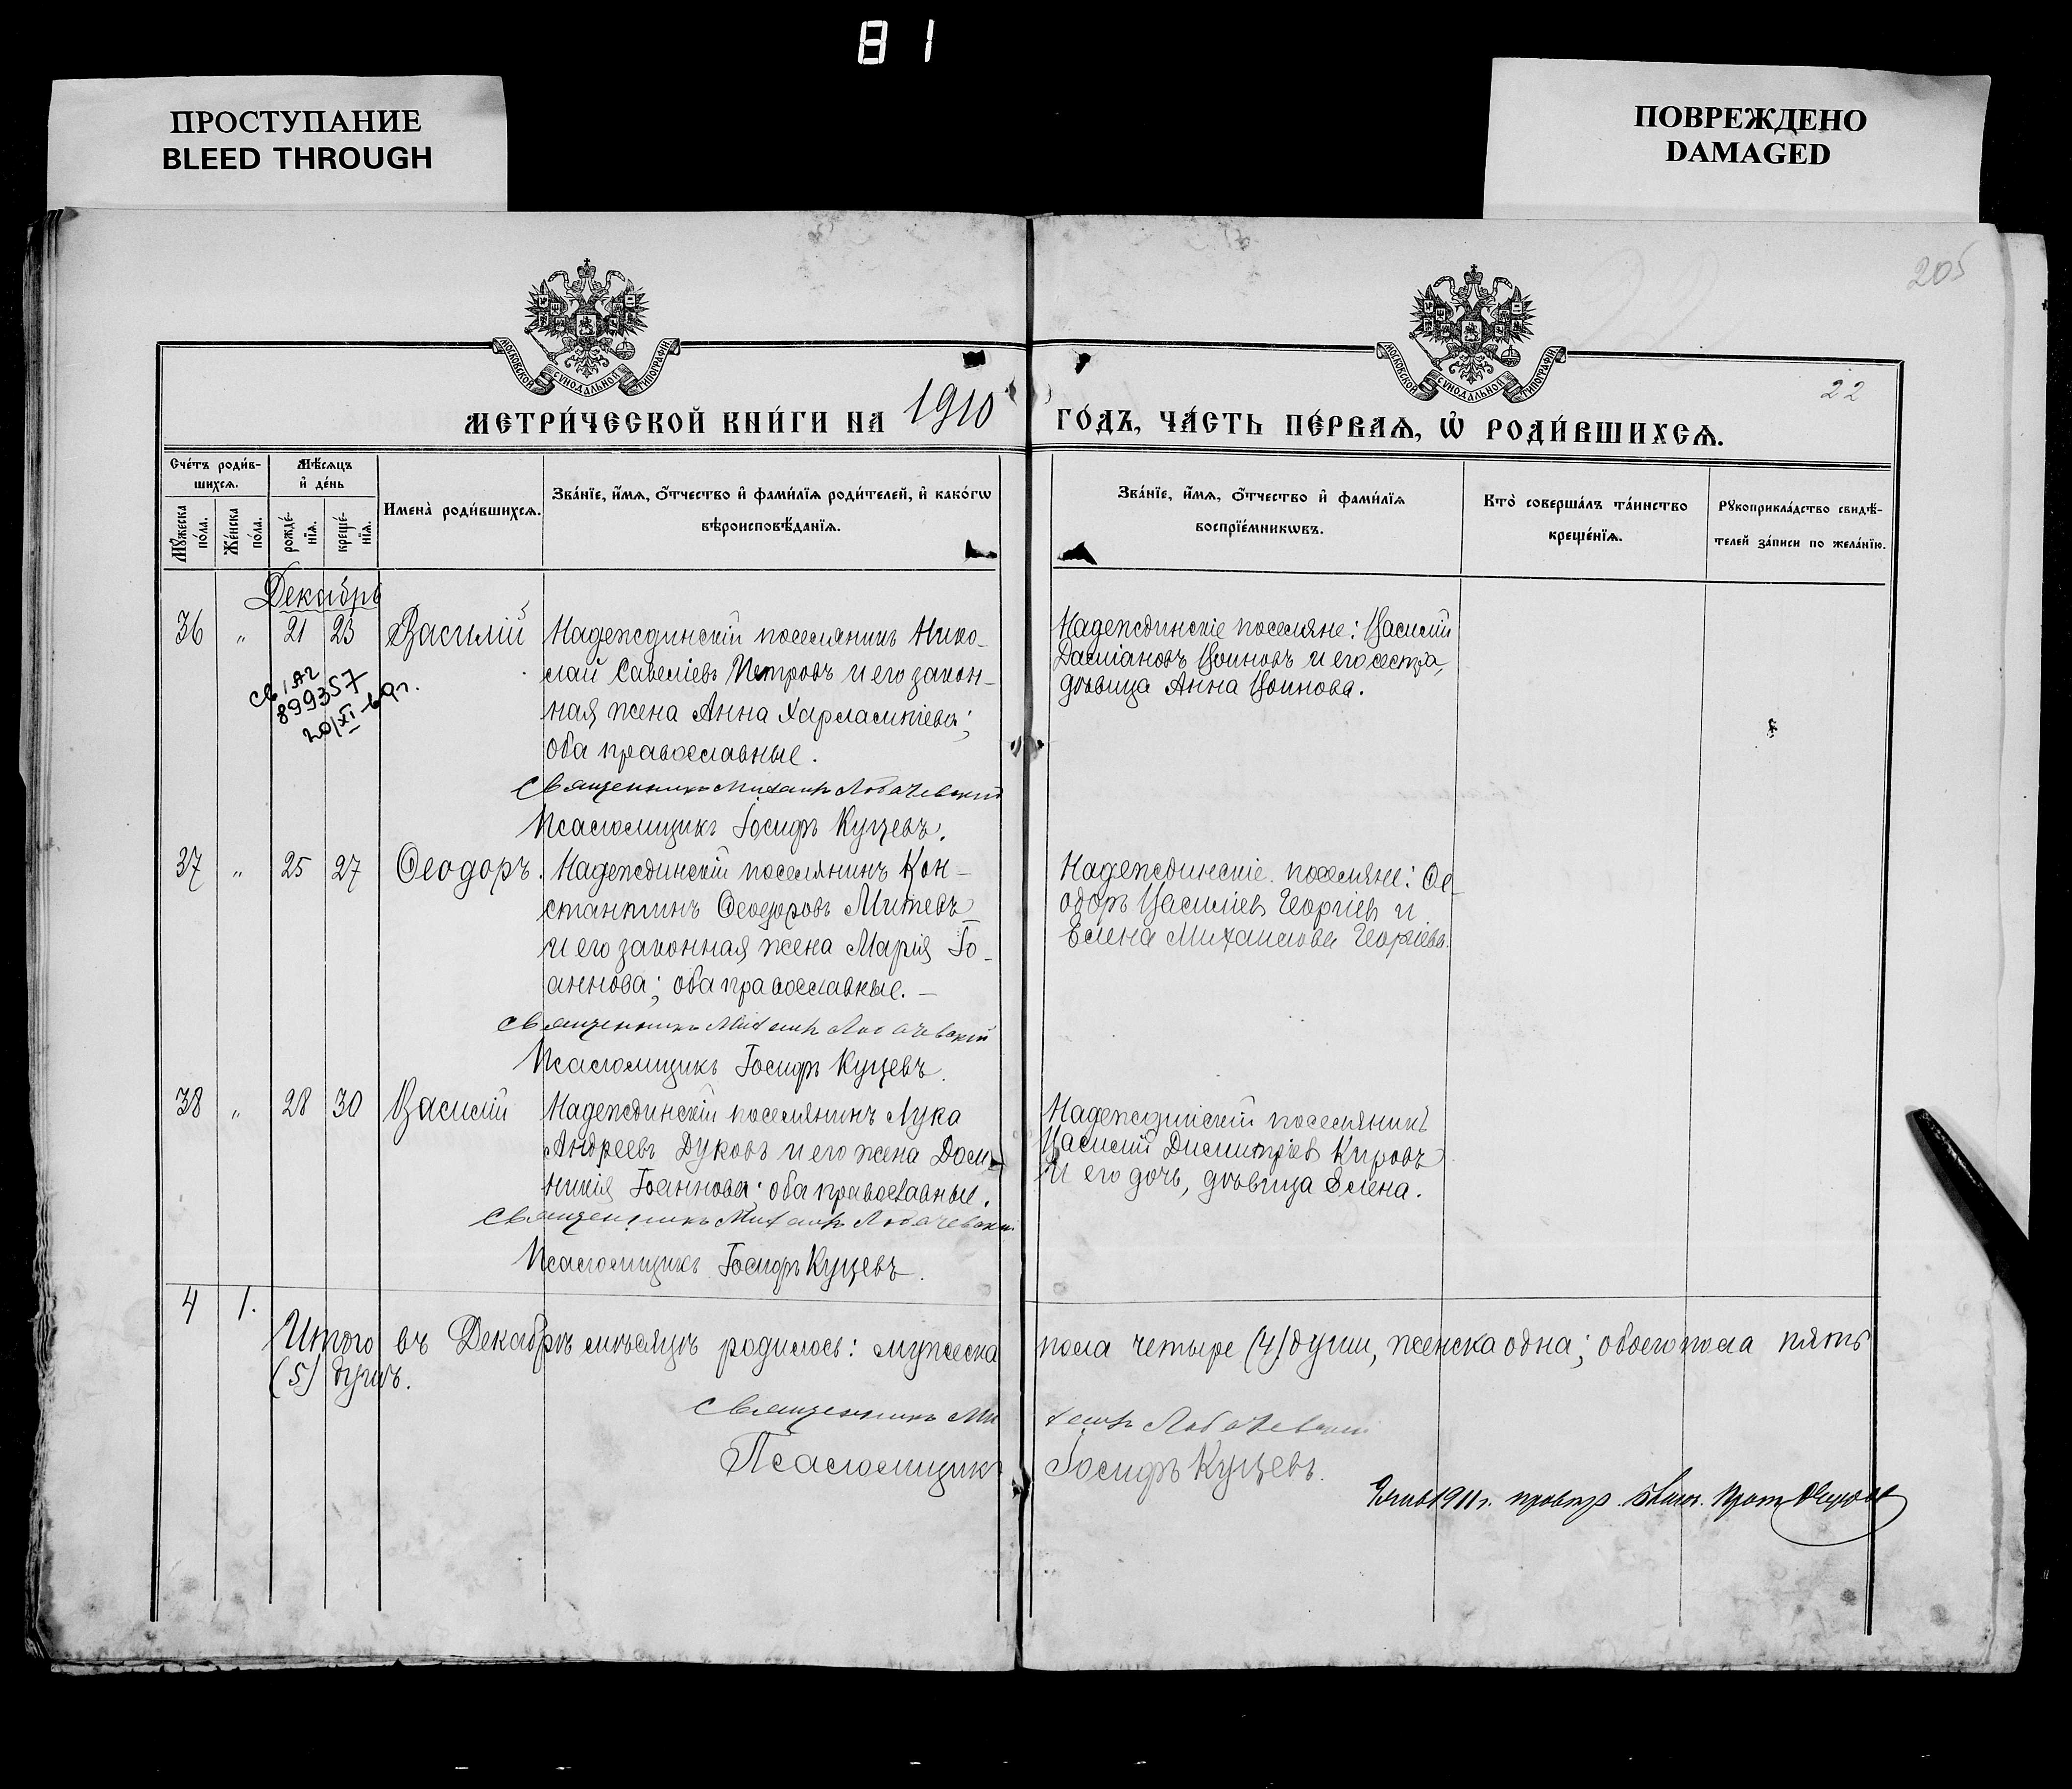 81
ПРОСТУПАНИЕ
BLEED THROUGH
ПОВРЕЖДЕНО
DAMAGED
205
22
22
МОСКОВСКОЙ СѴНОДАЛЬНОЙ ТИПОГРАФІИ
МОСКОВСКОЙ СѴНОДАЛЬНОЙ ТИПОГРАФІИ
МЕТРИ́ЧЕСКОЙ КНИ́ГИ НА 1910 ГО́ДЪ, ЧА́СТЬ ПЕ́РВАѦ, Ѽ РОДИ́ВШИХСѦ.
Сче́тъ роди́в-
шихсѧ.
Мꙋ́жеска
по́ла.
Же́нска
по́ла.
Мѣ́сѧцъ
и҆ де́нь
рожде́-
нїѧ.
креще́-
нїѧ.
Имена̀ роди́вшихсѧ.
Зва́нїе, и҆́мѧ, ѻ҆́тчество и҆ фами́лїѧ роди́телей, и҆ како́гѡ
вѣроисповѣ́данїѧ.
Зва́нїе, и҆́мѧ, ѻ҆́тчество и҆ фами́лїѧ
воспрїе́мникѡвъ.
Кто̀ соверша́лъ та́инство
креще́нїѧ.
Рꙋкоприкла́дство свидѣ́-
телей за́писи по жела́нїю.
Декабрь
36 " 21 23 Василій
Надеждинскій поселянинъ Нико-
лай Савеліевъ Петровъ и его закон-
ная жена Анна Харлампіева;
оба православные.
Священникъ Михаилъ Лобачевскій
Псаломщикъ Іосифъ Куцевъ.
Надеждинскіе поселяне: Василій
Даміановъ Воиновъ и его сестра,
дѣвица Анна Воинова.
899357
20/XI-69г.
37 " 25 27 Ѳеодоръ.
Надеждинскій поселянинъ Кон-
стантинъ Ѳеодоровъ Митевъ
и его законная жена Марія Іо-
аннова; оба православные. —
Священникъ Михаилъ Лобачевскій
Псаломщикъ Іосифъ Куцевъ.
Надеждинскіе поселяне: Ѳе-
одоръ Василіевъ Георгіевъ и
Елена Михаилова Георгіева.
38 " 28 30 Василій
Надеждинскій поселянинъ Лука
Андреевъ Дуковъ и его жена Дом-
никія Іоаннова; оба православные.
Священникъ Михаилъ Лобачевскій
Псаломщикъ Іосифъ Куцевъ.
Надеждинскій поселянинъ
Василій Димитріевъ Кировъ
и его дочь, дѣвица Елена.
4 1.
Итого въ Декабрѣ мѣсяцѣ родилось: мужеска пола четыре (4) души, женска одна; обоего пола пять
(5) душъ.
Священникъ Михаилъ Лобачевскій
Псаломщикъ Іосифъ Куцевъ.
1911 г.